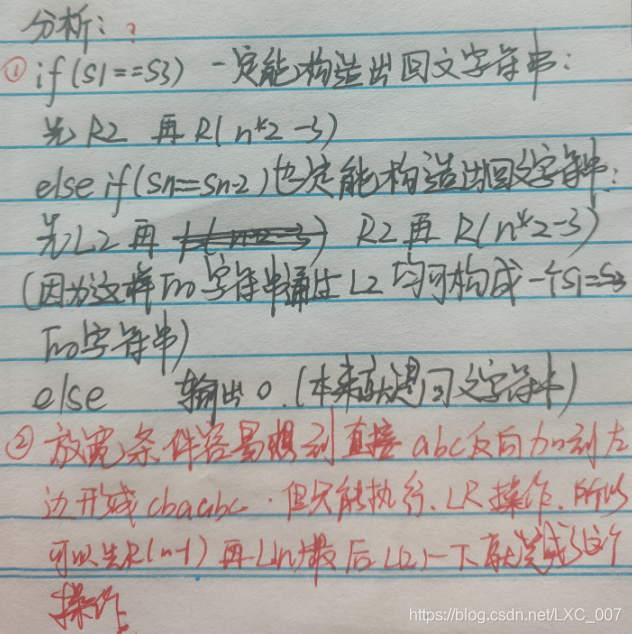 分析:?
① if(S1==S3) 一定能构造出回文字符串:
先R2 再R(n*2-3)
else if(Sn==Sn-2)也定能构造出回文字符串:
先L2再 R2再R(n*2-3)
(因为这样的字符串通过L2均可构成一个S1=S3
的字符串)
else 输出0.(本来就是回文字符串)
② 放宽条件容易想到直接abc反向加到左
边形成cbaabc.但只能执行.LR操作.所以
可以先R(n-1)再L(n)最后L(2)一下就完成了这个
操作.
https://blog.csdn.net/LXC_007